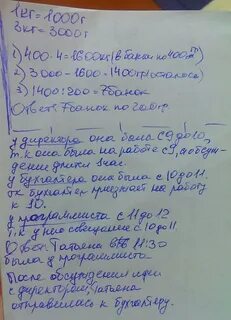 1кг = 1000г
3кг = 3000г
1) 400 · 4 = 1600г (в банках по 400г)
2) 3000 - 1600 = 1400г (осталось)
3) 1400 : 200 = 7 банок
Ответ: 7 банок по 200гр.
у директора она была с 9 до 10,
т.к она была на работе с 9, а обсуж-
дение длился 1 час.
у бухгалтера она была с 10 до 11.
т.к бухгалтер приезжает на работу
к 10.
у программиста с 11 до 12
т.к у него совещание с 10 до 11.
Ответ: Татьяна в 11:30
была у программиста
После обсуждения идеи
с директором, Татьяна
отправилась к бухгалтеру.